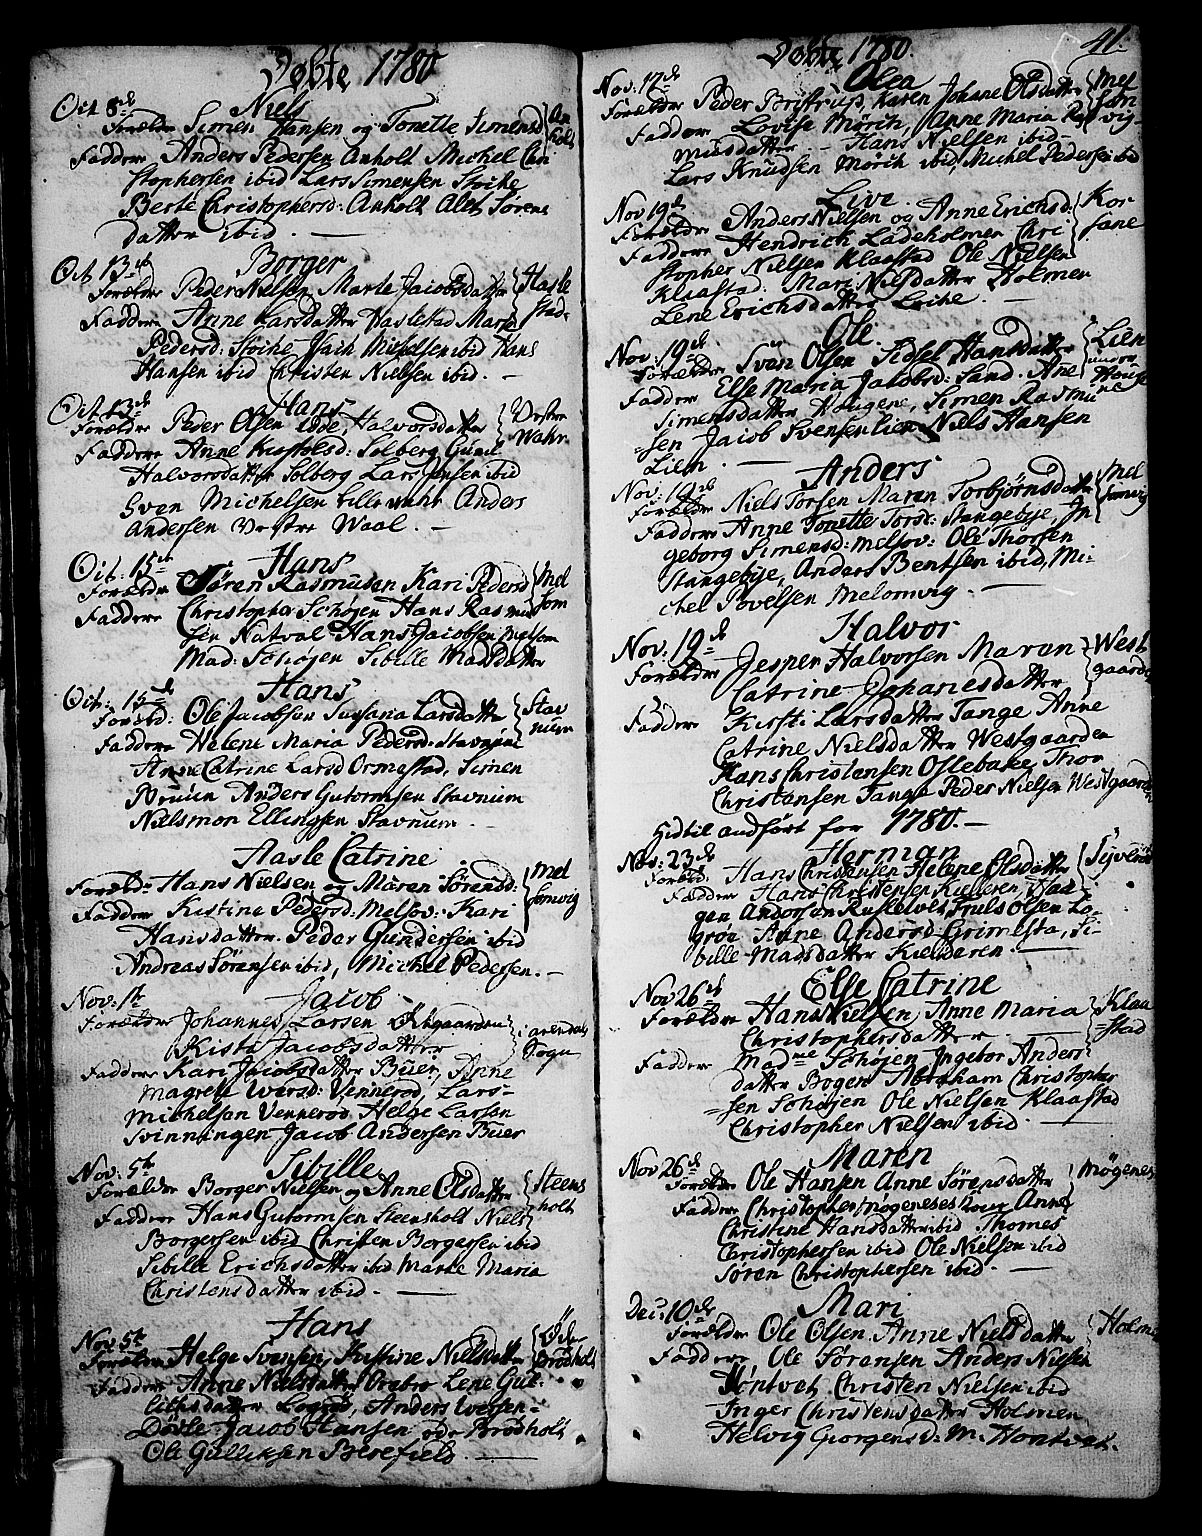 Døbte 1780
Oct 8de Niels
Forældre Simen Hansen og Tonette Simensd An
holt
Faddere Anders Pedersen Anholt Michel Chri
stophersen ibid Lars Simensen Stoche
Berte Christophersd: Anholt Alet Sørens
datter ibid. —
Oct 13de Borger
Forældre Peder Nielsen, Marte Jacobsdatter Hasle
stad
Faddere Anne Larsdatter Haslestad Maren
Pedersd: Stoche Jach Michelsen ibid Hans
Hansen ibid Christen Nielsen ibid. —
Oct 13de Hans
Forældre Peder Olsen Halvorsdatter Vestre
Wahr
Faddere Anne Solberg Gunil
Halvorsdatter Solberg Lars Jensen ibid
Sven Michelsen Lille Anders
Andersen Vestre Waal. —
Oct: 15de Hans
Forældre Søren Rasmusen Kari Pedersd Mel
som
Faddere Christopher Schøjen Hans Rasmu
sen Natval Hans Jacobsen Melsom
Mad: Schøjen Sibille Madsdatter
Oct: 15de Hans
Foræld: Ole Jacobsen Susana Larsdatter Stav
num
Faddere Helene Maria Pedersd: Stavnum
Anne Catrine Larsd Ormestad, Simen
Bruun Anders Gutormsen Stavnum
Nielsmon Ellingsen Stavnum. —
Aasle Catrine
Foræld: Hans Nielsen og Maren Sørensd: Mel
somvig
Faddere Kistine Pedersd: Melsov: Kari
Hansdatter. Peder Gundersen ibid
Andreas Sørensen ibid, Michel Pedersen. —
Nov: 1te Jacob
Forældre Johannes Larsen i arendals
Kisti Jacobsdatter Sogn
Faddere Kari Jacobsdatter Buer, Anne
Magrete Iversd: Vennerød, Lars
Michelsen Vennerød Helge Larsen
Svinningen Jacob Andersen Buer
Nov: 5te Sibille
Forældre Borger Nielsen og Anne Olsdatter Steens
holt
Faddere Hans Gutormsen Steensholt Niels
Borgersen ibid Christen Borgersen ibid
Sibille Erichsdatter ibid Marte Maria
Christensdatter ibid. —
Hans
Nov: 5te
Forældre Helge Svensen, Kistine Nielsdatter Øde
Brødholt
Faddere Anne Nielsdatter Lene Gul-
lichsdatter Anders Iversen
Jacob Hansen øde Brødholt
Ole Gullichsen Bærefield. —
Døbte 1780. 41.
Nov: 17de Olea
Forældre Peder Bristrup, Karen Johane Olsdatter Mel
som
vig
Faddere Lovise Mørch, Anne Maria Ras
musdatter — Hans Nielsen ibid
Lars Knudsen Mørch ibid, Michel Pedersen ibid
Nov 19de Live
Forældre Anders Nielsen og Anne Erichsd: Kor
sane
Faddere Hendrich Ladeholmen Chri
stopher Nielsen Klaastad Ole Nielsen
Klaastad: Mari Nilsdatter Holmen
Lene Erichsdatter Leche —
Nov: 19de Ole
Forældre Sven Olsen Sidsel Hansdatter Lien
under
Houge
Faddere Else Maria Jacobsd: Sand. Ane
Simensdatter Hougene, Simen Rasmu
=sen Jacob Svensen Lien Niels Hansen
Lien. —
Nov: 19de Anders
Forældre Niels Torsen Maren Torbjørnsdatter Mel
somvig
Faddere Anne Tonette Torsd: Stangebye, In
geborg Simensd: Melsov: Ole Thorsen
Stangebye, Anders Bentsen ibid, Mi-
chel Povelsen Melsomvig. —
Nov: 19de Halvor
Forældre Jesper Halvorsen Maren West
gaarden
Catrine Johanesdatter
Faddere Kirsti Larsdatter Tange Anne
Catrine Nielsdatter Westgaarden
Hans Christensen Oslebake, Thor
Christensen Tange Peder Nielsen Westgaarden
Hidtil andført for 1780. —
Nov: 23de Herman
Foræld: Hans Christensen Helene Olsdatter
Faddere Hans Christensen Kielleren, Haa-
gen Andersen Truls Olsen Lo-
grøe Anne Andersd: Grimesta, Si-
bille Madsdatter Kielderen —
Nov 26de Else Catrine
Forældre Hans Nielsen Anne Maria Klaa
=stad
Christophersdatter —
Faddere Madme Schøjen Ingebor Anders
datter Bogen Abraham Christopher
=sen Schøjen Ole Nielsen Klaastad
Christopher Nielsen ibid. —
Nov 26de Maren
Forældre Ole Hansen Anne Sørensdatter Møgenes
Faddere Christopher Anne
Christine Hansdatter ibid Thomes
Christophersen ibid Ole Nielsen ibid
Søren Christophersen ibid. —
Dec: 10de Mari
Forældre Ole Olsen Anne Nielsdatter Holme
Faddere, Ole Sørensen Anders Nielsen
Hontvet, Christen Nielsen ibid
Inger Christensdatter Holmen
Helvig Giorgensd: M. Hontvet.